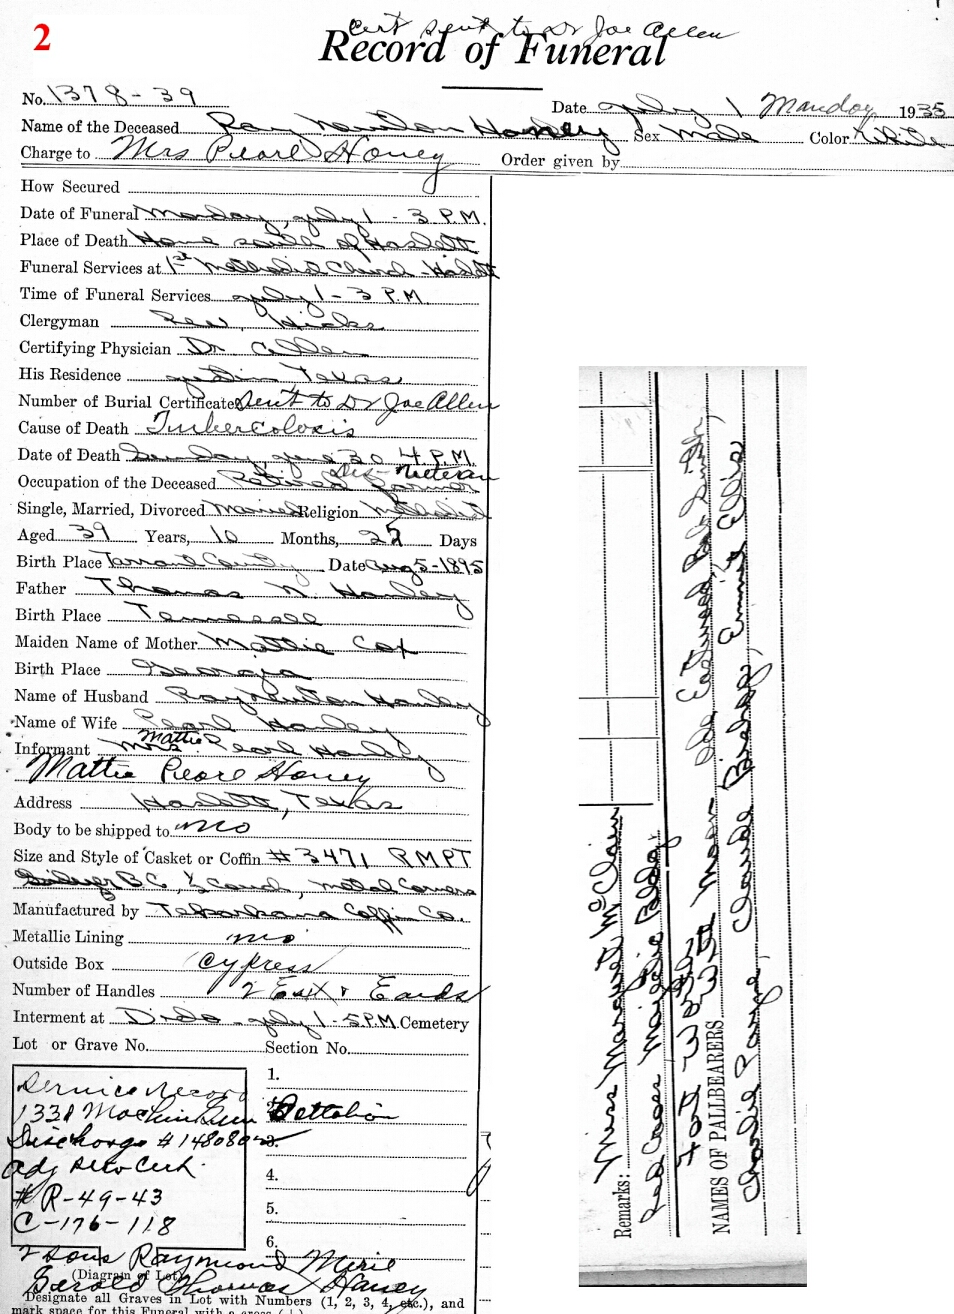 2
Cert sent to Dr Joe Allen
Record of Funeral
No. 1378-39
Date July 1 Monday 1935
Name of the Deceased Ray Newton Haney Sex Male Color White
Charge to Mrs Pearl Honey Order given by
How Secured
Date of Funeral Monday, July 1 - 3 P.M.
Place of Death Home south of Haslett
Funeral Services at 1st Methodist Church Haslett
Time of Funeral Services July 1 - 3 P.M.
Clergyman Rev. Hicks
Certifying Physician Dr Allen
His Residence Justin Texas
Number of Burial Certificate Sent to Dr Joe Allen
Cause of Death Tuberculosis
Date of Death Sunday June 30 4 P.M.
Veteran
Occupation of the Deceased Retired Farmer
Single, Married, Divorced Married Religion Methodist
Aged 39 Years, 10 Months, 25 Days
Birth Place Tarrant County Date Aug 5-1895
Father Thomas N. Haney
Birth Place Tennessee
Maiden Name of Mother Mattie Cox
Birth Place Georgia
Name of Husband Ray Newton Haney
Name of Wife Pearl Haney
Mattie
Informant Mrs. Pearl Haney
Mattie Pearl Honey
Address Haslett, Texas
Body to be shipped to no
Size and Style of Casket or Coffin #3471 RMPT
B C, ½ Couch, metal Corners
Manufactured by Texarkana Coffin Co.
Metallic Lining no
Outside Box Cypress
Number of Handles 2 Ext & Ends
Interment at Dido - July 1 - 5 P.M. Cemetery
Lot or Grave No. Section No.
Service Record
133d Machine Gun Battalion
Discharge #148080
Adj Serv Cert.
# R-49-43
C-176-118
1.
2.
3.
4.
5.
6.
2 sons Raymond Merie
(Diagram of Lot)
Gerald Thomas Haney
Designate all Graves in Lot with Numbers (1, 2, 3, 4, etc.), and
mark space for this Funeral with a cross (+)
Remarks: Miss Margaret McClain
Red Cross Bldg
Fort Worth
NAMES OF PALLBEARERS Witt Moon Ida Eastwood Bob Smith,
Charlie Range, Claude Bishop, Emmitt Ellis